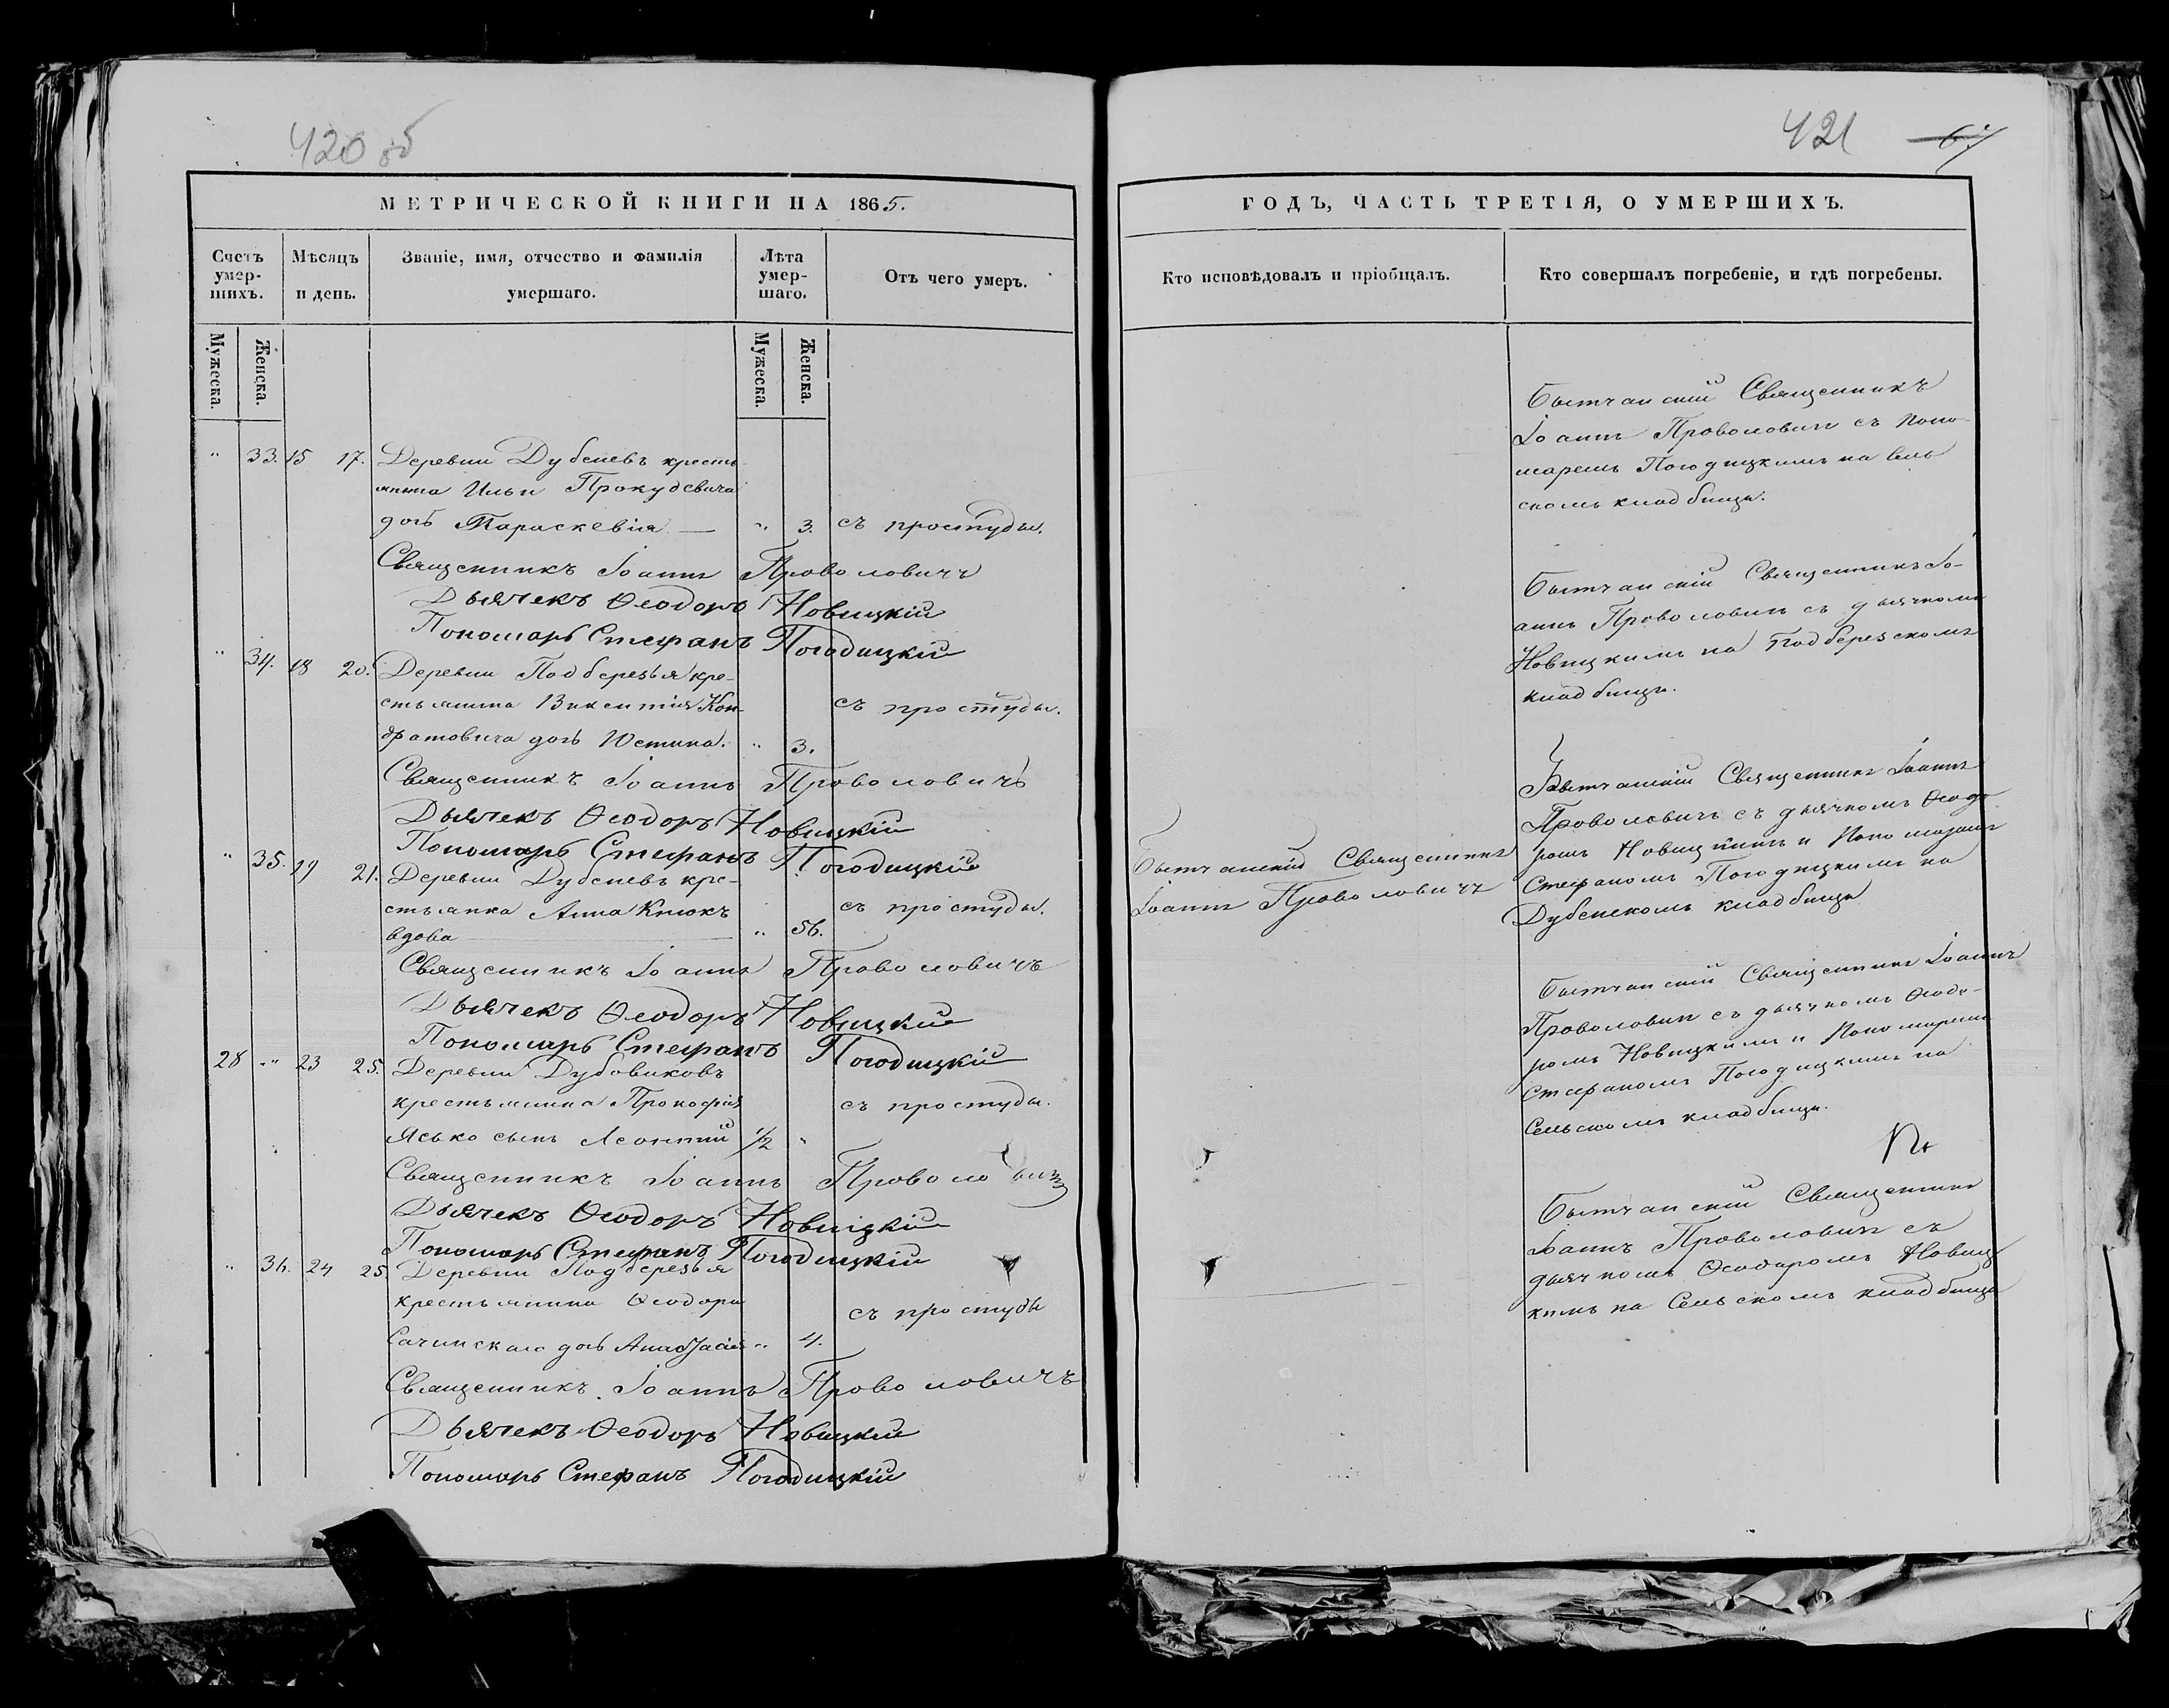 420 об
МЕТРИЧЕСКОЙ КНИГИ НА 1865.
Счетъ умер-шихъ.
Мѣсяцъ и день.
Званіе, имя, отчество и фамилія умершаго.
Лѣта умер-шаго.
Отъ чего умеръ.
Мужеска.
Женска.
Мужеска.
Женска.
" 33. 15 17. Деревни Дубеневъ кресть-
янина Ильи Прокудовича
дочь Параскевія — " 3. съ простуды.
Священникъ Іоаннъ Проволовичъ
Дьячекъ Ѳеодоръ Новицкій
Пономарь Стефанъ Погодицкій
" 34. 18 20. Деревни Подберезья кре-
стьянина Викентія Кон- съ простуды.
дратовича дочь Юстина. " 3.
Священникъ Іоаннъ Проволовичъ
Дьячекъ Ѳеодоръ Новицкій
Пономарь Стефанъ Погодицкій
" 35. 19 21. Деревни Дубеневъ кре-
стьянка Анна Кнюкъ съ простуды.
вдова — " 56.
Священникъ Іоаннъ Проволовичъ
Дьячекъ Ѳеодоръ Новицкій
Пономарь Стефанъ Погодицкій
28 " 23 25. Деревни Дубовиковъ
крестьянина Прокофія съ простуды.
Ясько сынъ Леонтій 1/2 "
Священникъ Іоаннъ Проволовичъ
Дьячекъ Ѳеодоръ Новицкій
Пономарь Стефанъ Погодицкій
" 36. 24 25. Деревни Подберезья
крестьянина Ѳеодора съ простуды
Сачинскаго дочь Анастасія " 4.
Священникъ Іоаннъ Проволовичъ
Дьячекъ Ѳеодоръ Новицкій
Пономарь Стефанъ Погодицкій
421 67
ГОДЪ, ЧАСТЬ ТРЕТІЯ, О УМЕРШИХЪ.
Кто исповѣдовалъ и пріобщалъ.
Кто совершалъ погребеніе, и гдѣ погребены.
Бытчанскій Священникъ
Іоаннъ Проволовичъ съ поно-
маремъ Погодицкимъ на Сель
скомъ кладбищѣ.
Бытчанскій Священникъ Іо-
аннъ Проволовичъ съ дьячкомъ
Новицкимъ на Подберезскомъ
кладбищѣ.
Бытчанскій Священникъ
Іоаннъ Проволовичъ
Бытчанскій Священникъ Іоаннъ
Проволовичъ съ дьячкомъ Ѳеодо
ромъ Новицкимъ и Пономаремъ
Стефаномъ Погодицкимъ на
Дубенскомъ кладбищѣ
Бытчанскій Священникъ Іоаннъ
Проволовичъ съ дьячкомъ Ѳеодо-
ромъ Новицкимъ и Пономаремъ
Стефаномъ Погодицкимъ на
Сельскомъ кладбищѣ.
Бытчанскій Священникъ
Іоаннъ Проволовичъ съ
дьячкомъ Ѳеодоромъ Новиц
кимъ на Сельскомъ кладбищѣ